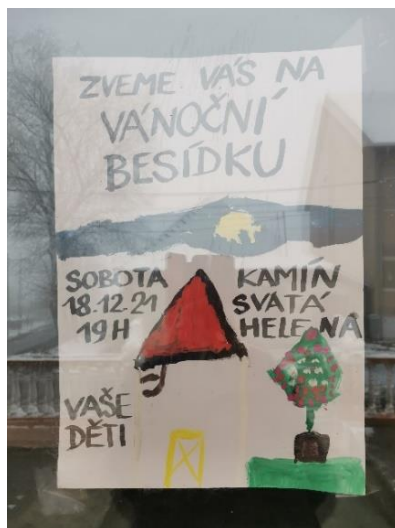 ZVEME VÁS NA
VÁNOČNÍ
BESÍDKU
SOBOTA
18.12.21
19H
KAMÍN
SVATÁ
HELENA
VAŠE
DĚTI